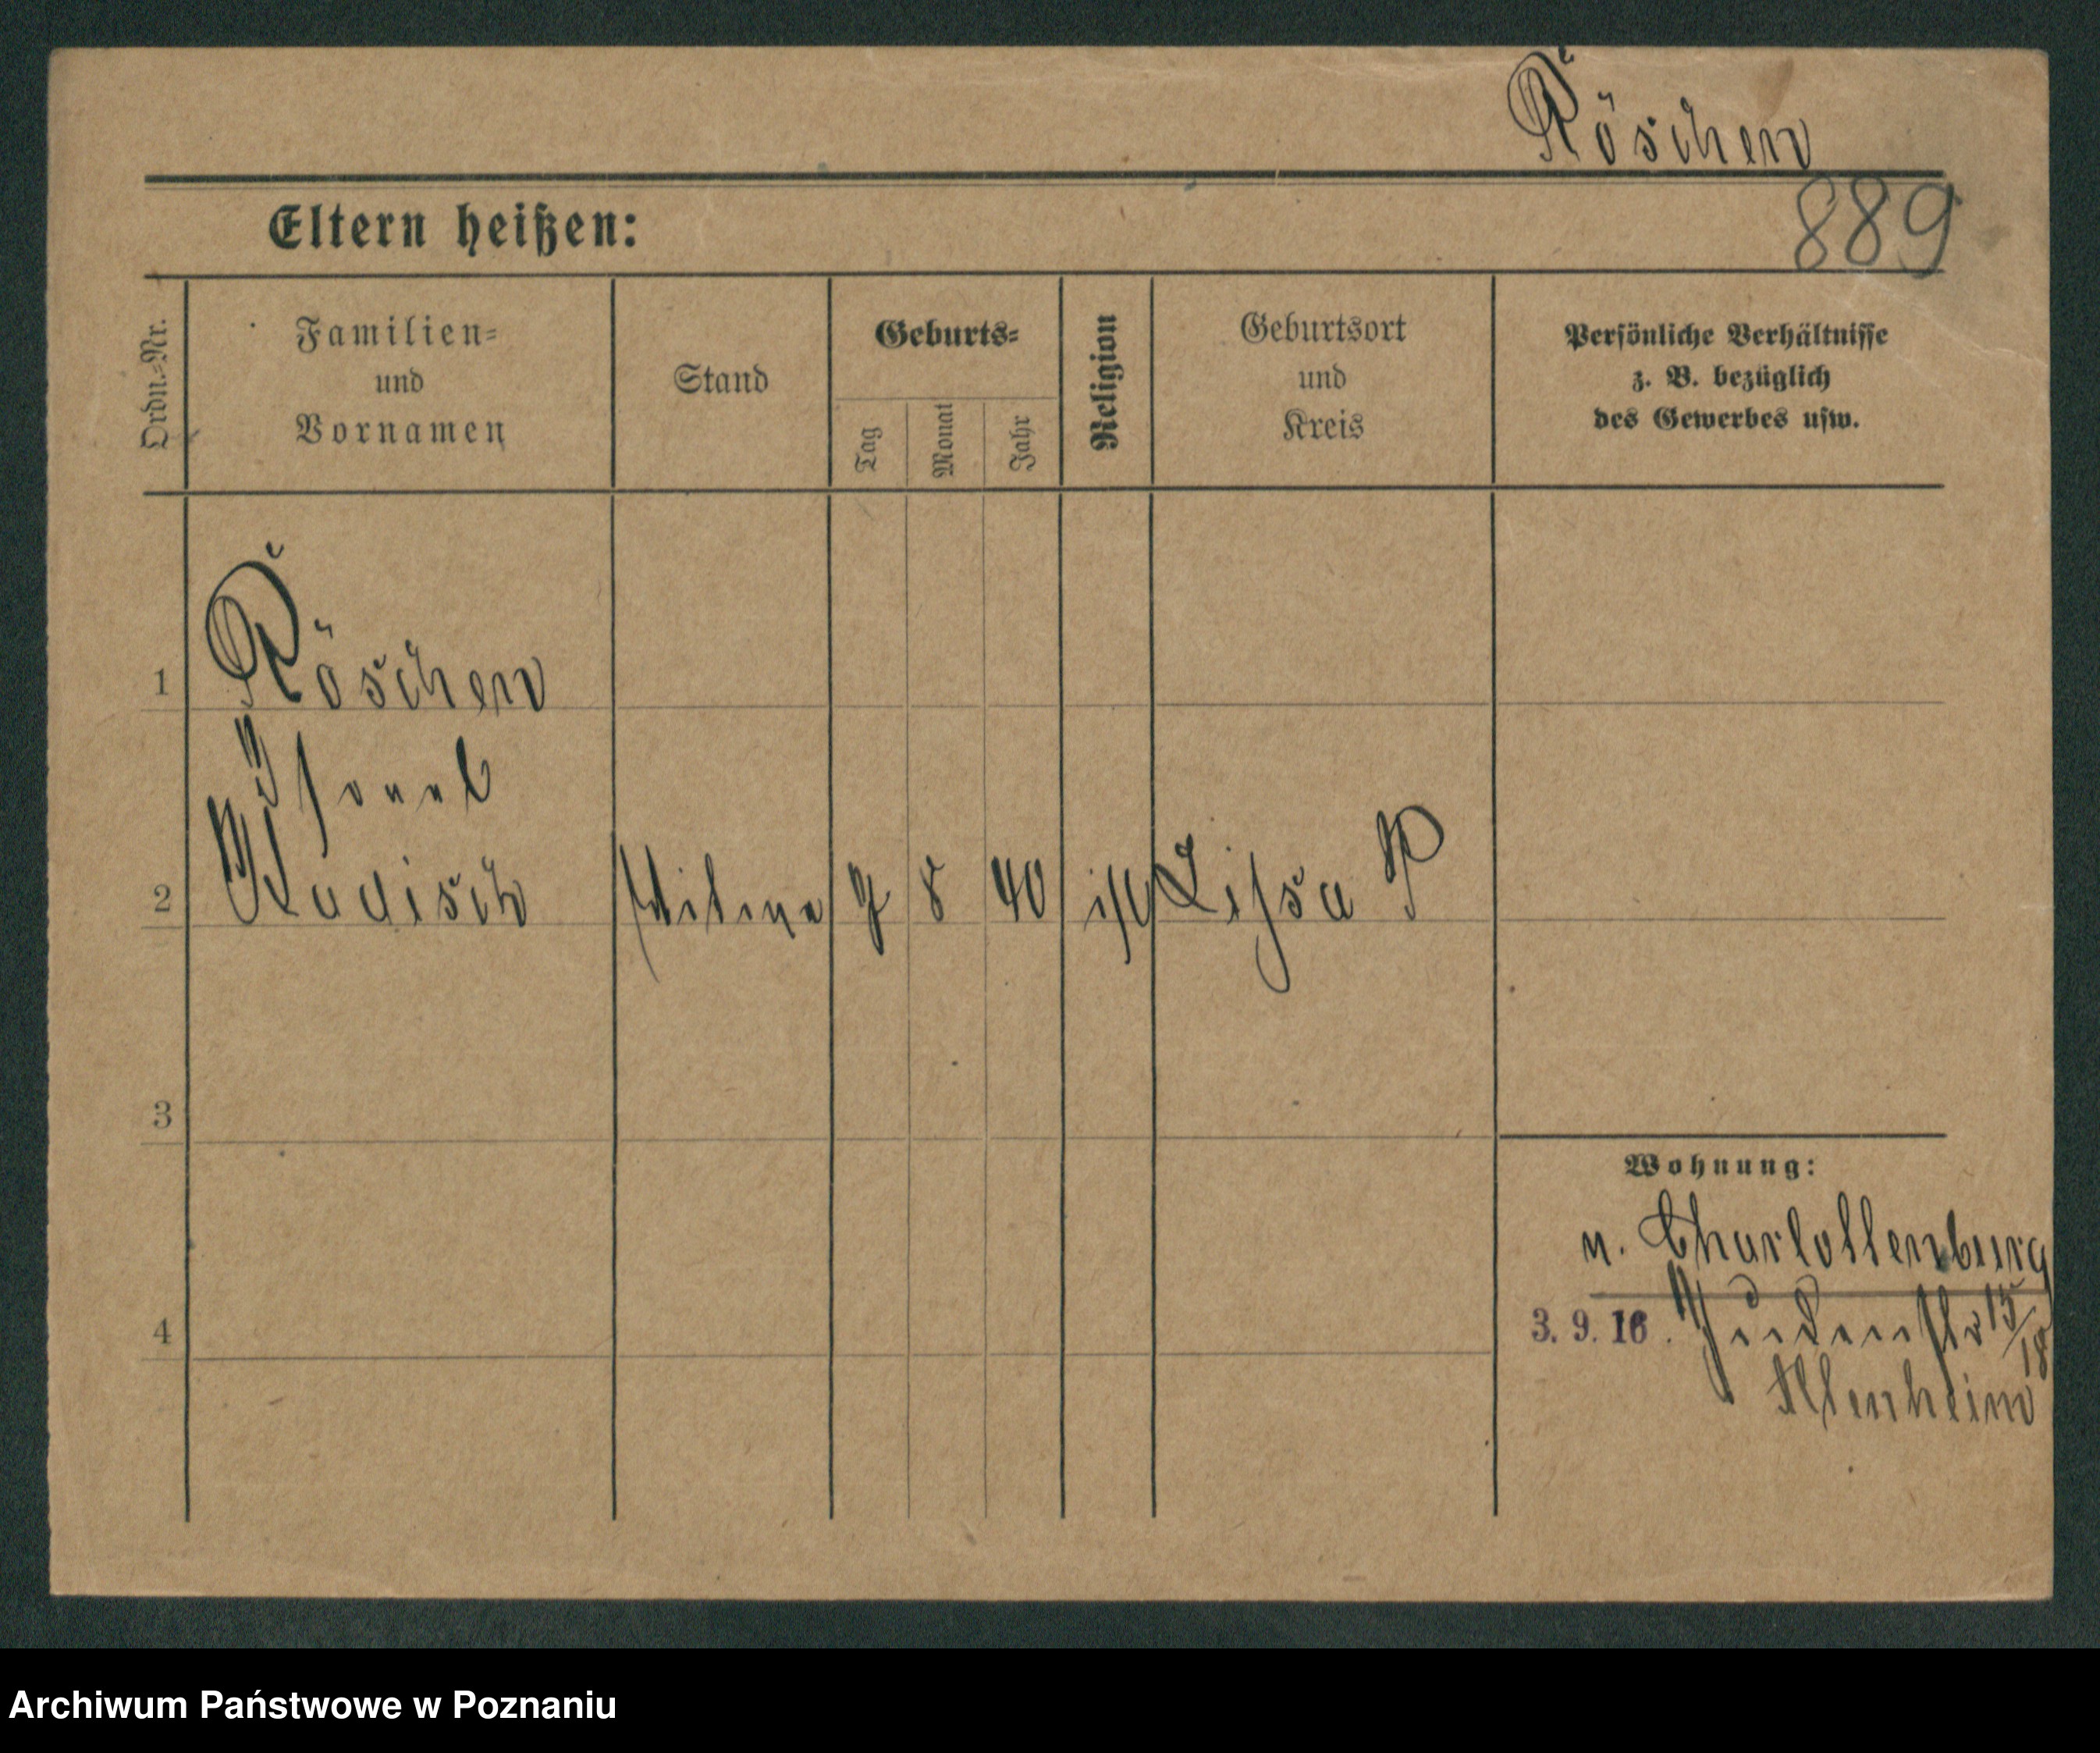 Röschen
889
Eltern heißen:
Ordn.-Nr.
Familien-
und
Vornamen
Stand
Geburts-
Tag
Monat
Jahr
Religion
Geburtsort
und
Kreis
Persönliche Verhältnisse
z. B. bezüglich
des Gewerbes usw.
1
Röschen
2
7 8 40 isr Lissa P
3
Wohnung:
n. Charlottenburg
4
3. 9. 16. Judenstr 15/18
Altenheim
Archiwum Państwowe w Poznaniu